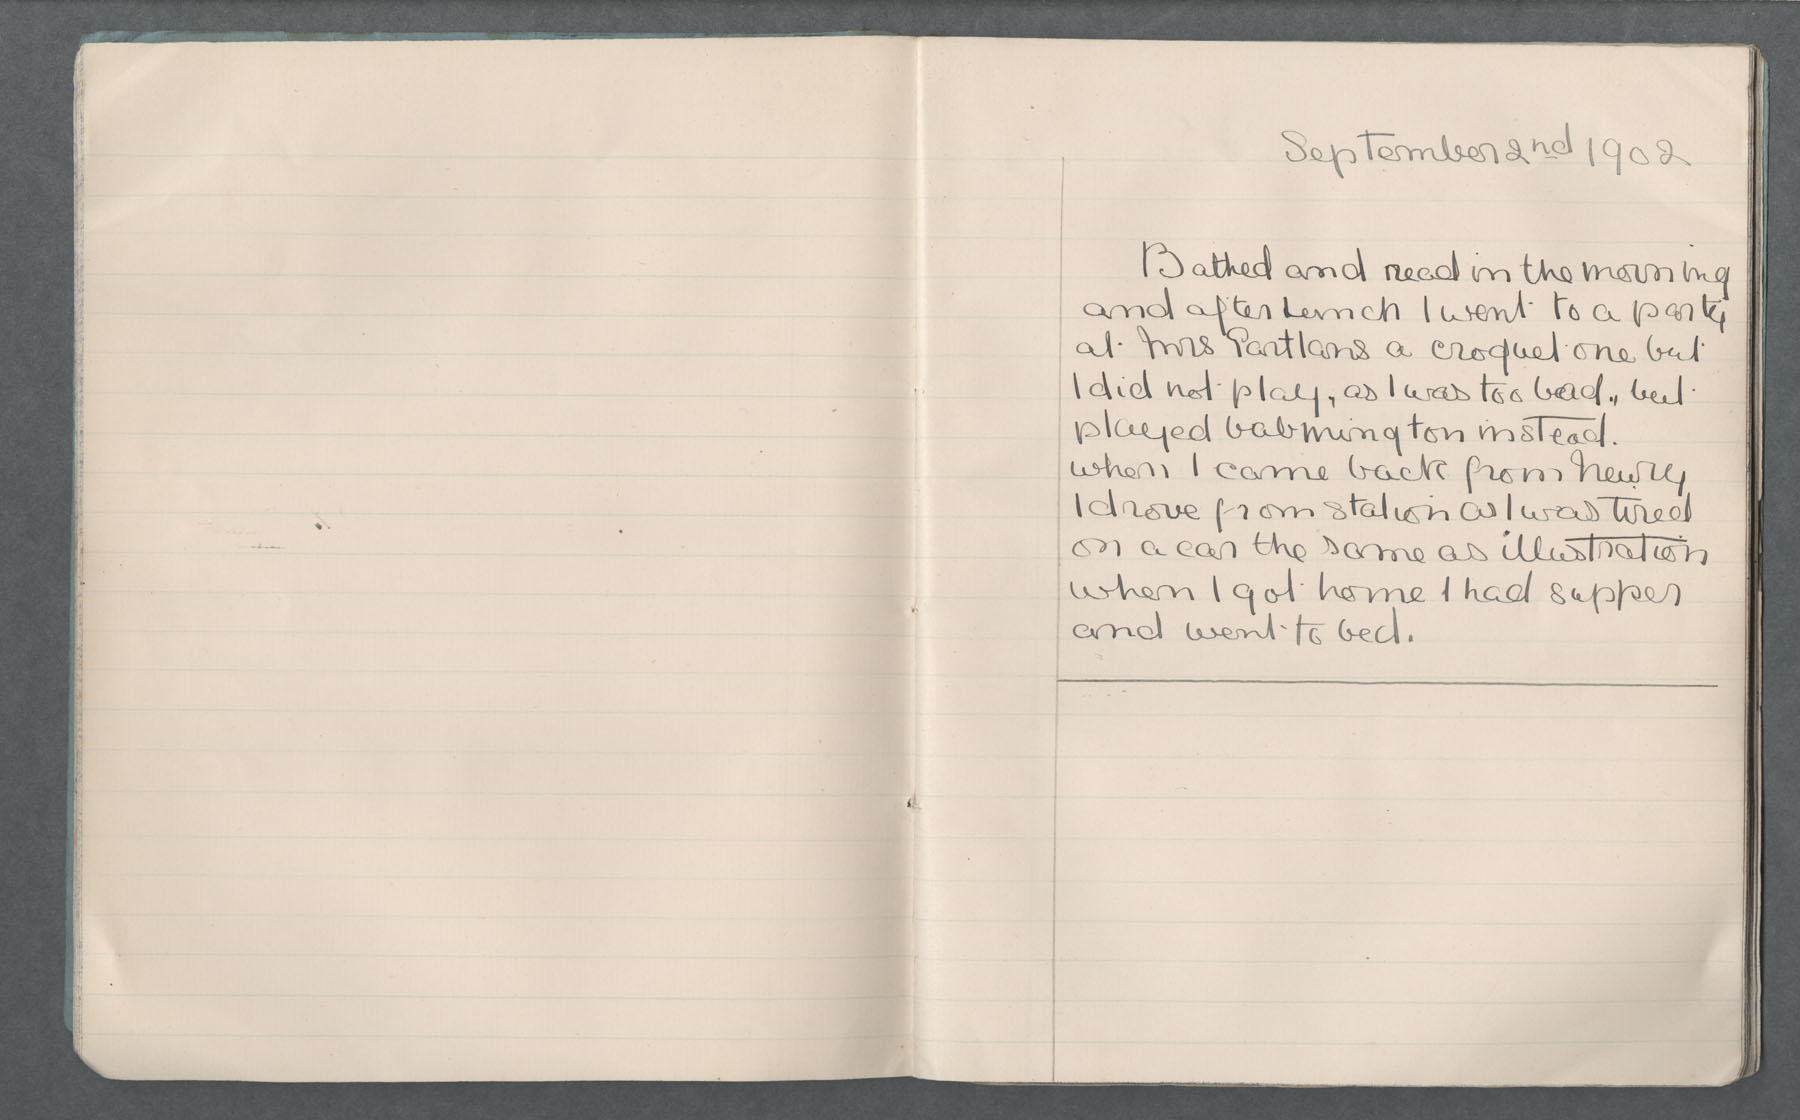 September 2nd 1902
Bathed and read in the morning
and after Lunch I went to a party
at Mrs Partlans a croquet one but
I did not play, as I was too bad., but
played babmington instead.
when I came back from Newry
I drove from station as I was tired
on a car the same as illustration
when I got home I had supper
and went to bed.